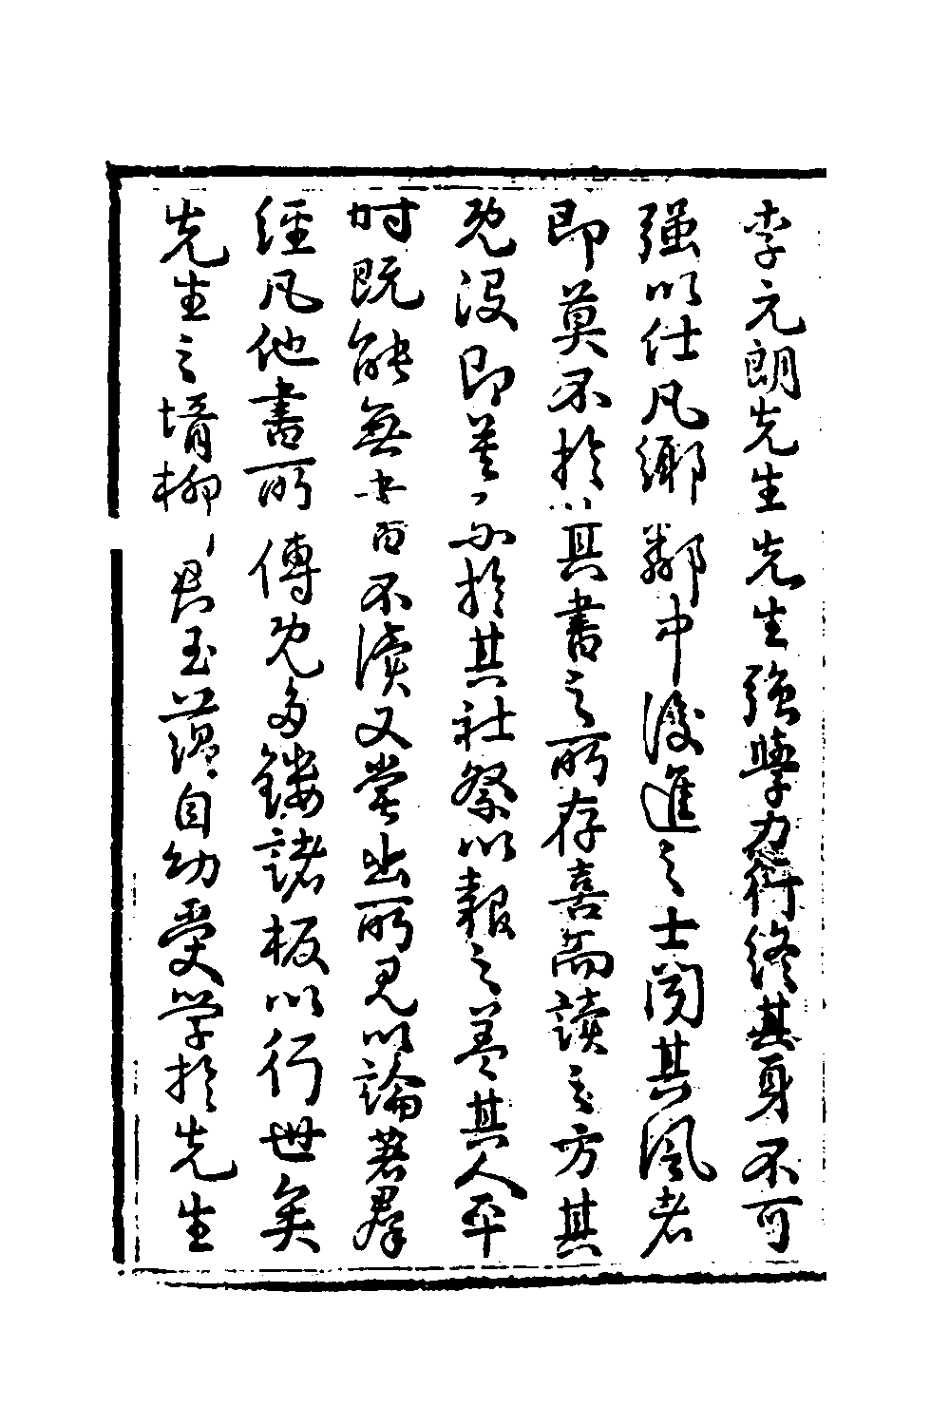 李元朗先生先生強學力行終其身不可
强以仕凡鄉鄰中後進之士聞其風者
即莫不於其書之所存喜而讀之方其
既沒即善而於其社祭以報之蓋其人平
時既能無書不讀又嘗出所見以論著群
經凡他書所傳既多鏤諸板以行世矣
先生之壻柳君玉蘊自幼受学於先生